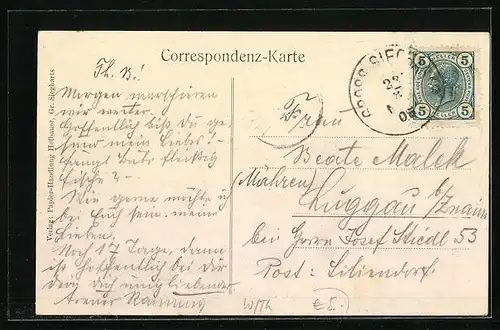 Correspondenz-Karte
Verlag: Papier-Handlung Hofbauer, Gr. Siegharts
Th. B!
Morgen marschieren
wir weiter.
Hoffentlich bist Du ge-
sund mein Liebes?-
Fangt Bubi fleißig
Fische?-
Wie gerne möchte
bei Euch sein, meine
Lieben.
Noch 17 Tage, dann
ist hoffentlich bei Dir
Dein Dich innig liebender
GROSS SIEG
5 5
5 5
Frau
Beate Malek
(Mähren) Luggau b/Znaim
bei Herrn Josef Stiedl 53
Post: Liliendorf
€5.-